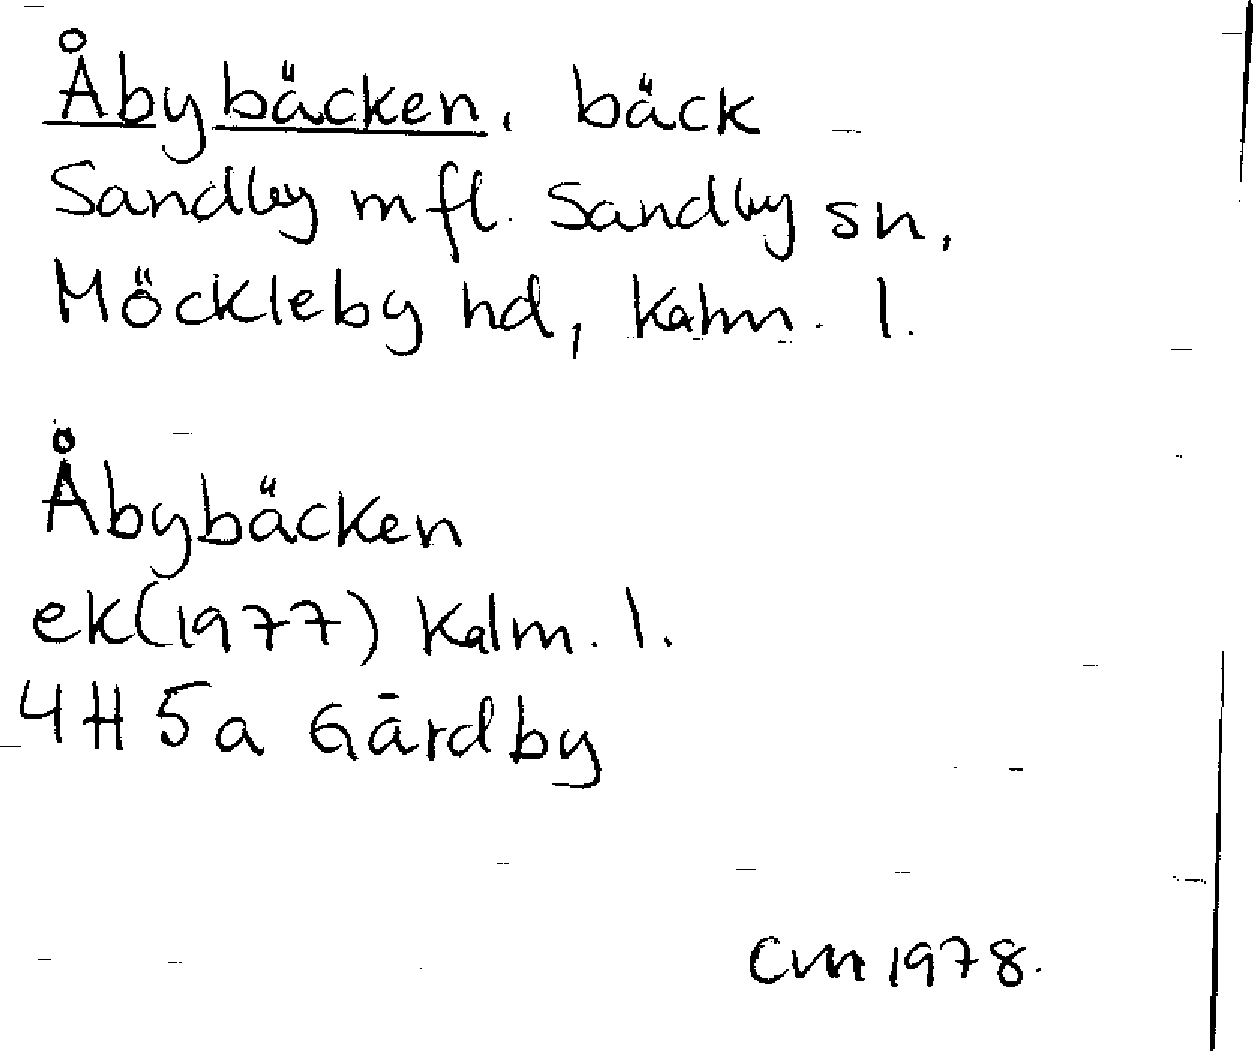 Åbybäcken, bäck
Sandby mfl. Sandby sn,
Möckleby hd, Kalm. l.
Åbybäcken
ek(1977) Kalm. l.
4H 5a Gårdby
CM 1978.